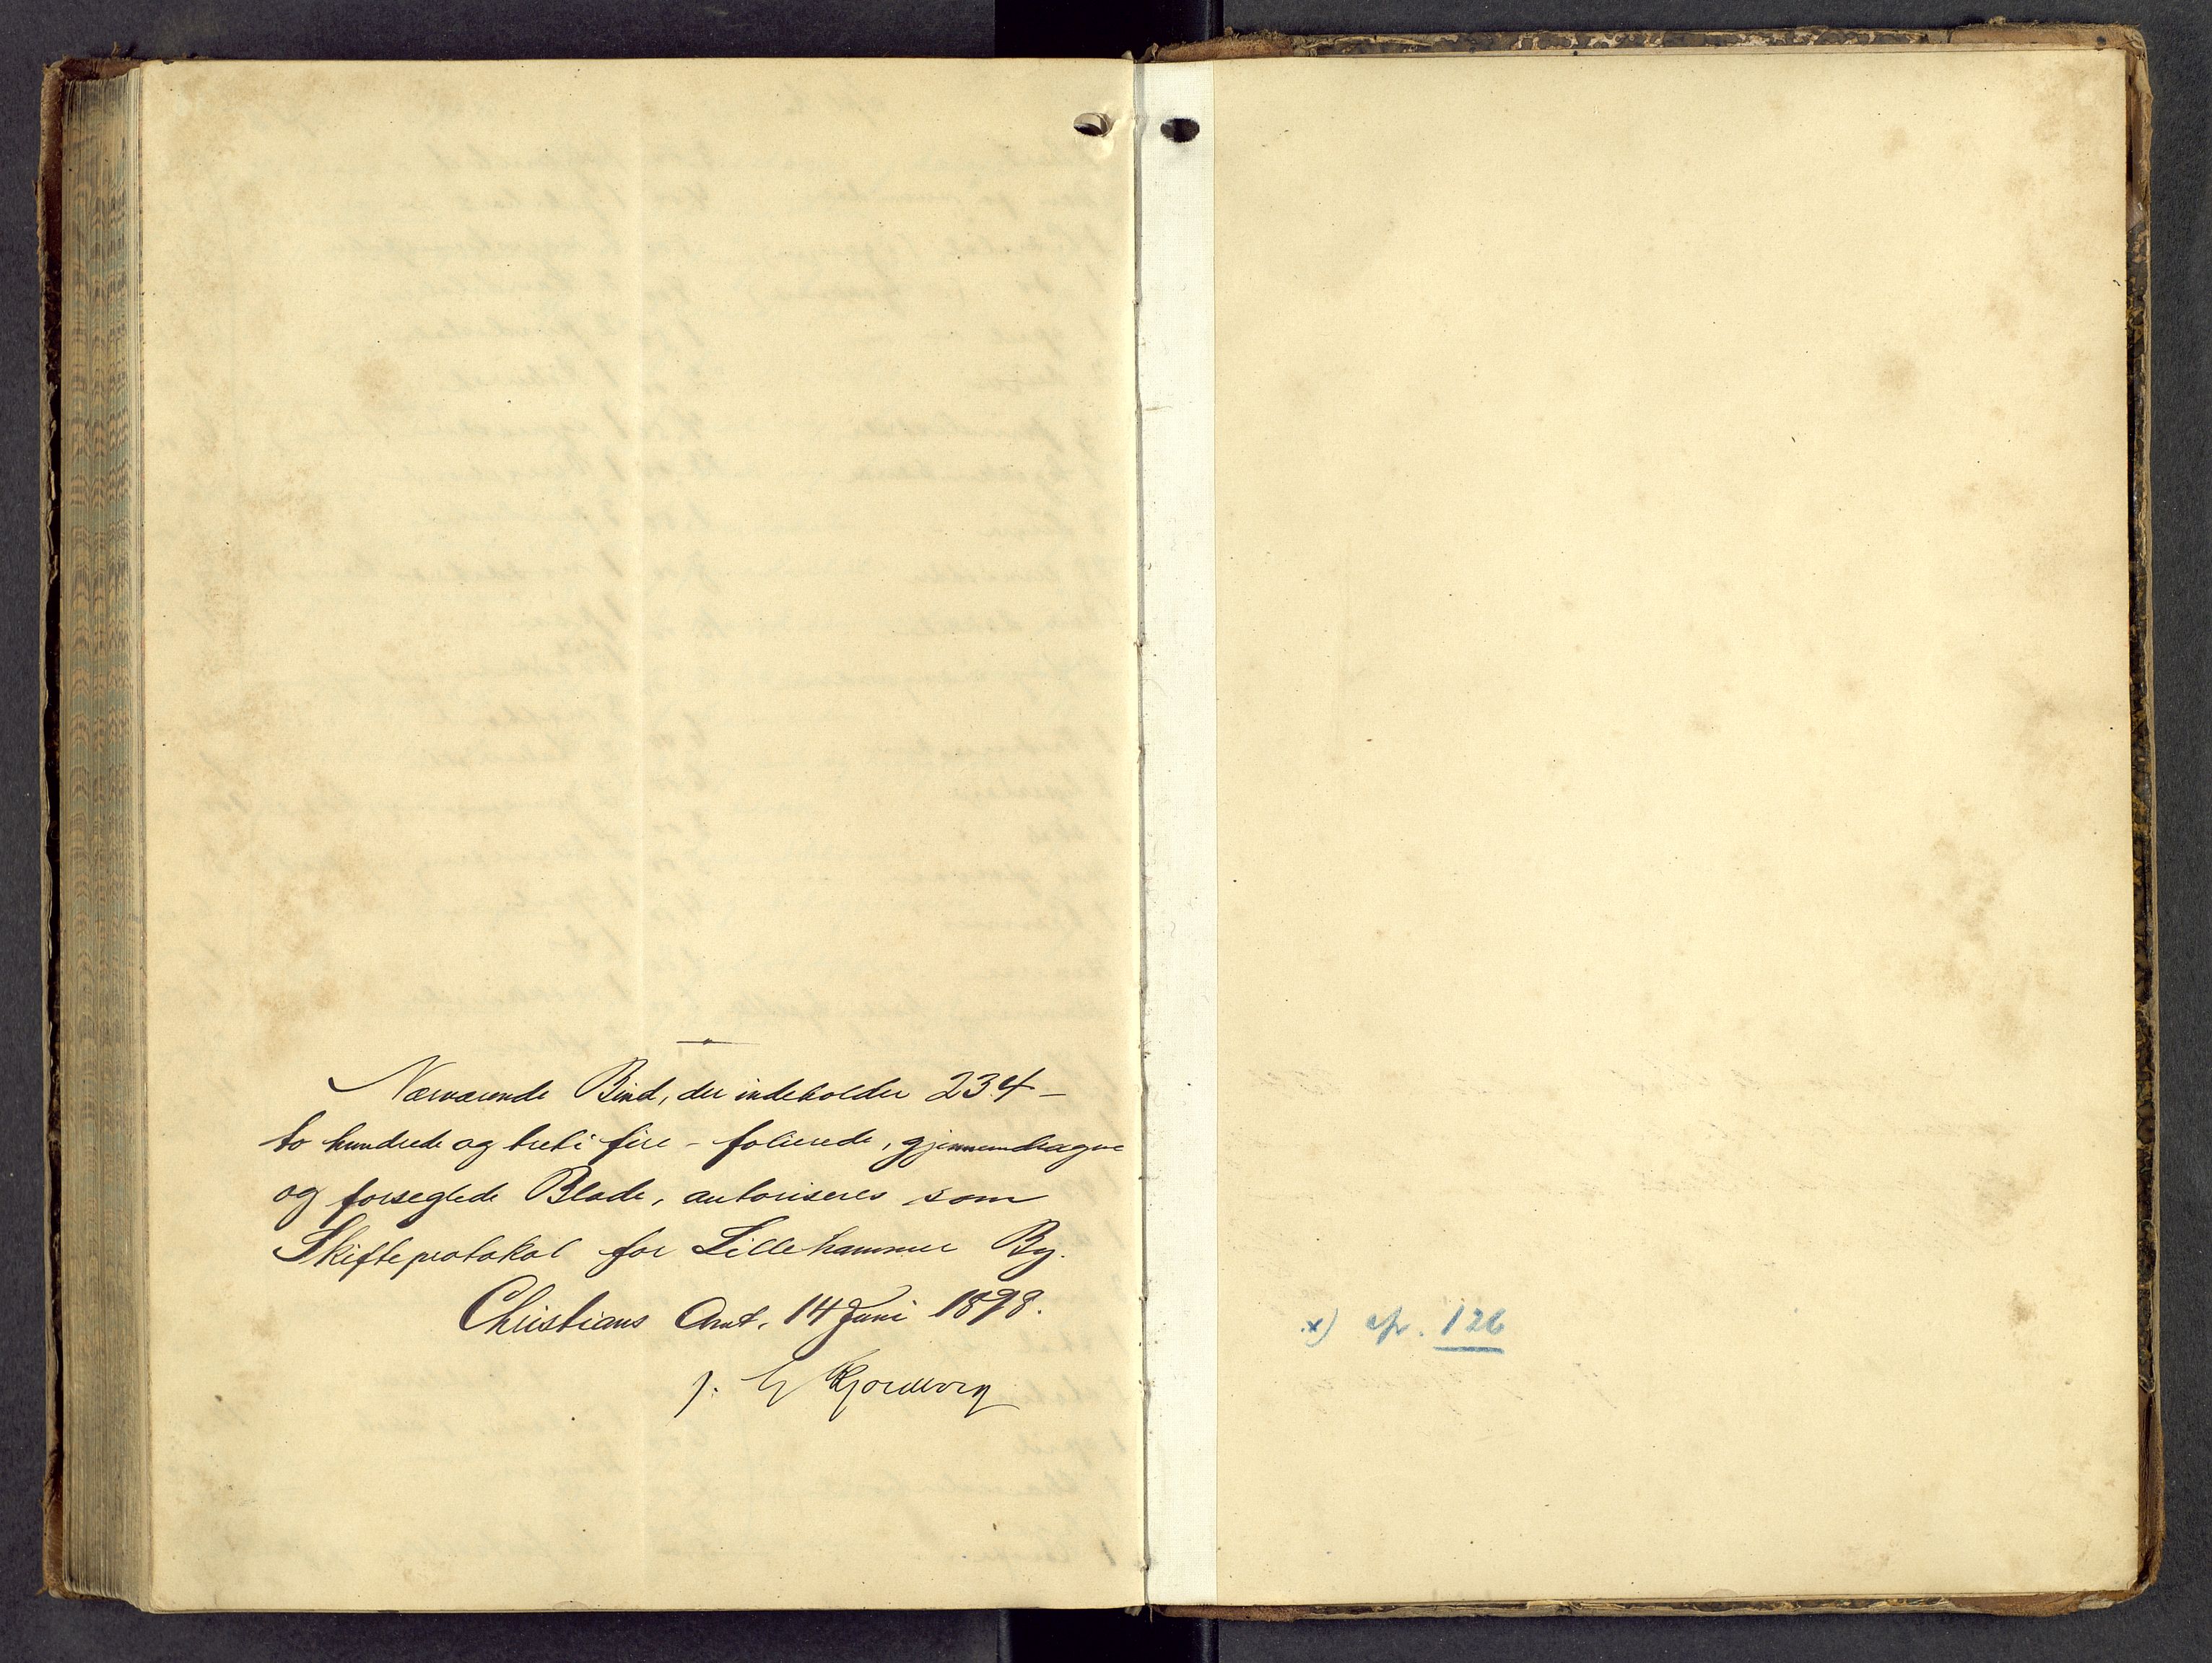 Nærværende Bind, der indeholder 234 –
to hundrede og treti fire – folierede, gjennemdragne
og forseglede Blade, autoriseres som
Skifteprotokol for Lillehammer By.
Christians Amt, 14 Juni 1898.
x) cfr. 126